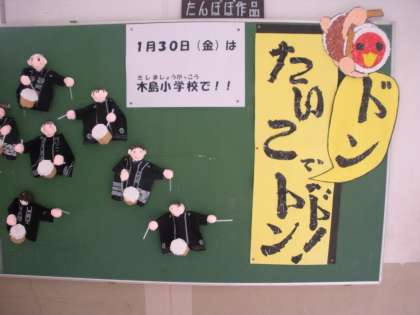 たんぽぽ作品
1月30日（金）は
きしましょうがっこう
木島小学校で！！
ドン
たいこでドドン！